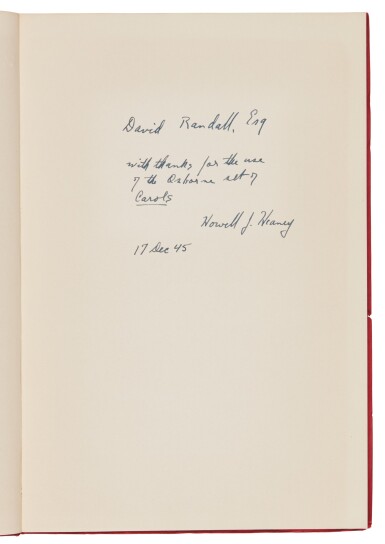 David Randall, Esq
with thanks for the use
of the Osborne set of
Carols
Howell J. Heaney
17 Dec 45